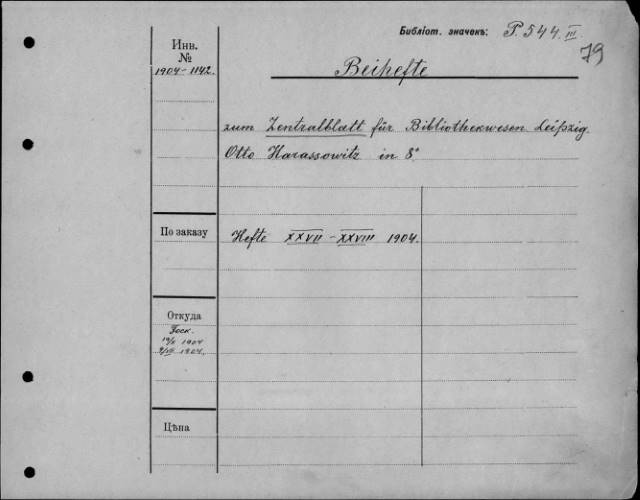 Библіот. значекъ: P. 544. III
79
Инв.
№
1904-1142.
Beihefte
zum Zentralblatt für Bibliothekwesen Leipzig.
Otto Harassowitz in 8°
По заказу
Hefte XXVII-XXVIII 1904.
Откуда
1904
1904.
Цѣна